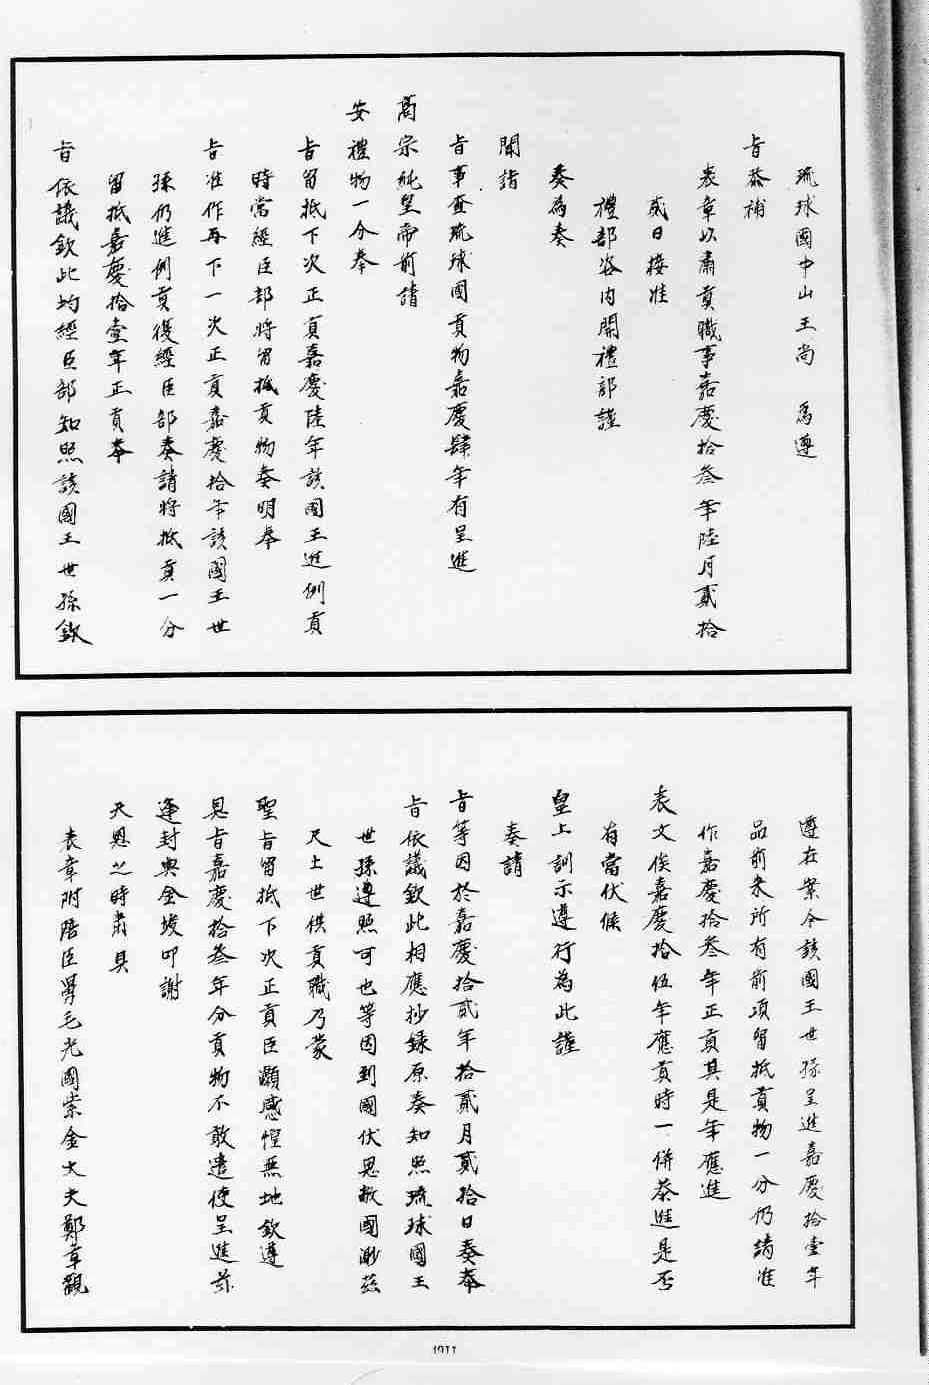 琉球國中山王尚　為遵
旨恭補
表章以肅貢職事嘉慶拾叁年陸月貳拾
貳日接准
禮部咨內開禮部謹
奏為奏
聞請
旨事查琉球國貢物嘉慶肆年有呈進
高宗純皇帝前請
安禮物一分奉
旨留抵下次正貢嘉慶陸年該國王進例貢
時當經臣部將留抵貢物奏明奉
旨准作再下一次正貢嘉慶拾年該國王世
孫仍進例貢復經臣部奏請將抵貢一分
留抵嘉慶拾壹年正貢奉
旨依議欽此均經臣部知照該國王世孫欽
遵在案今該國王世孫呈進嘉慶拾壹年
品前來所有前項留抵貢物一分仍請准
作嘉慶拾叁年正貢其是年應進
表文俟嘉慶拾伍年應貢時一併恭進是否
有當伏候
皇上訓示遵行為此謹
奏請
旨等因於嘉慶拾貳年拾貳月貳拾日奏奉
旨依議欽此相應抄錄原奏知照琉球國王
世孫遵照可也等因到國伏思敝國渺茲
尺土世供貢職乃蒙
聖旨留抵下次正貢臣灝感惶無地欽遵
恩旨嘉慶拾叁年分貢物不敢遣使呈進茲
逢封典金竣叩謝
天恩之時肅具
表章附陪臣舅毛光國紫金大夫鄭章觀
1911